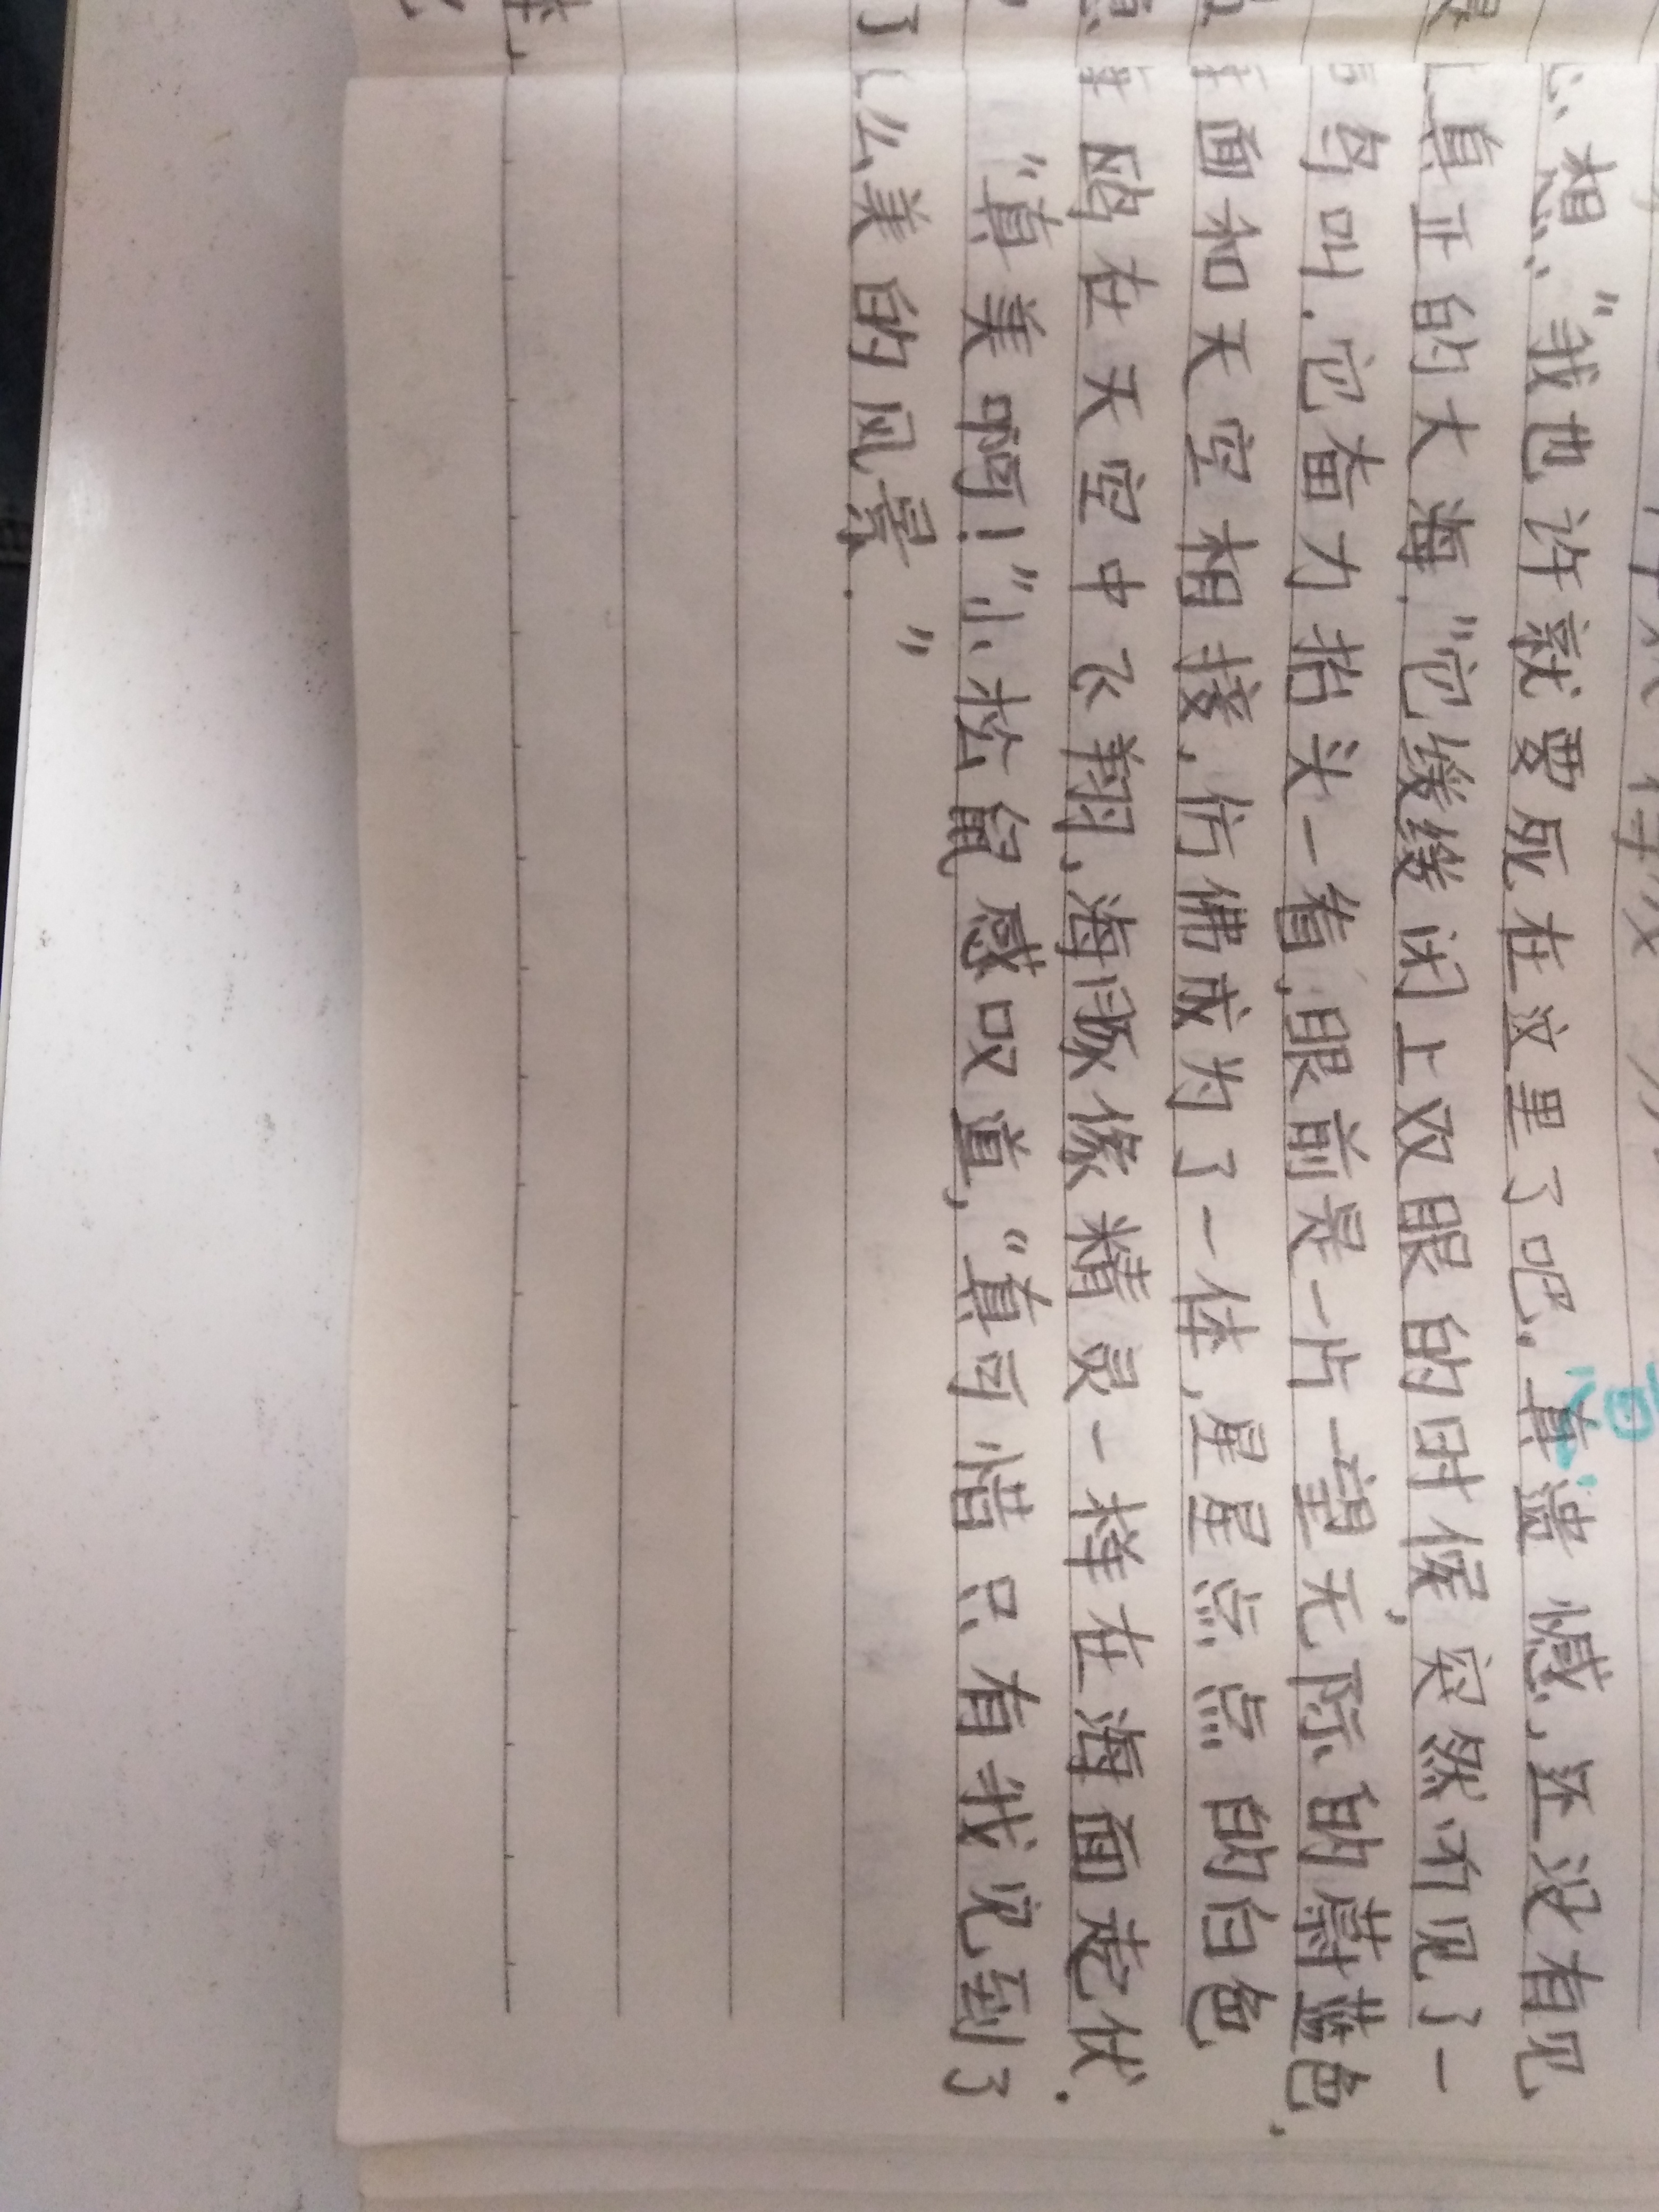 想，“我也许就要死在这里了吧。真遗憾，还没有见
真正的大海。”它缓缓闭上双眼的时候，突然听见了一
鸟叫．它奋力抬头一看，眼前是一片一望无际的蔚蓝色，
面和天空相接，仿佛成为了一体，星星点点的白色
鸥在天空中飞翔，海豚像精灵一样在海面起伏．
“真美啊！”小松鼠感叹道，“真可惜只有我见到了
么美的风景．”